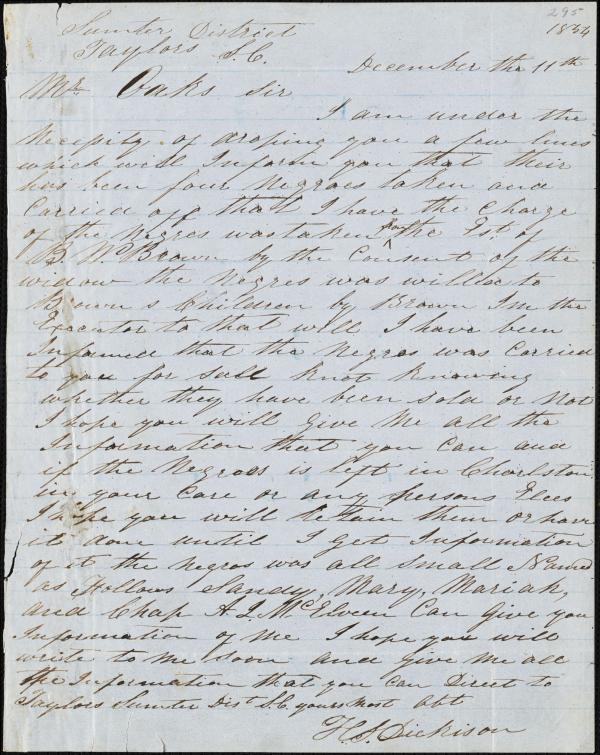 295
Sumter District 1854
Taylors S.C.
December the 11th
Mr. Oaks Sir
I am under the
Necesity of droping you a few lines
which will Inform you that their
has been four Negroes taken and
Carried off that I have the Charge
of the Negros was taken from the Est. of
B Mc Brown by the Consent of the
widow the Negros was willd to
Browns Children by Brown Im the
Executor to that will I have been
Infomed that the Negros was Carried
to you for sale knot knowing
whether they have been sold or Not
I hope you will Give Me all the
Information that you Can and
if the Negroes is left in Charlston
in your Care or any persons Elces
I hope you will Retain them or have
it done until I get Information
of it the Negros was all small Named
as Follows Sandy, Mary, Mariah,
and Chap A. J. McElveen Can Give you
Information of Me I hope you will
write to Me soon and give Me all
the Information that you Can Direct to
Taylors Sumter Dist S.C. yours Most Obt
H. S. Dickison